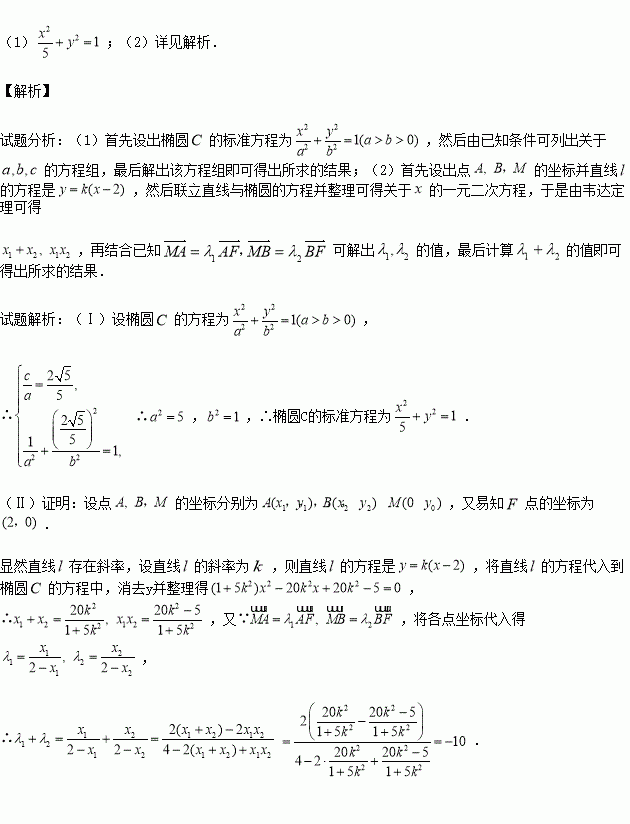 (1) $\frac{x^2}{5}+y^2=1$ ；(2) 详见解析．
【解析】
试题分析：(1) 首先设出椭圆 $C$ 的标准方程为 $\frac{x^2}{a^2}+\frac{y^2}{b^2}=1(a>b>0)$ ，然后由已知条件可列出关于
$a,b,c$ 的方程组，最后解出该方程组即可得出所求的结果；(2) 首先设出点 $A, B, M$ 的坐标并直线 $l$
的方程是 $y=k(x-2)$ ，然后联立直线与椭圆的方程并整理可得关于 $x$ 的一元二次方程，于是由韦达定
理可得
$x_1+x_2, x_1x_2$ ，再结合已知 $\overrightarrow{MA}=\lambda_1\overrightarrow{AF},\overrightarrow{MB}=\lambda_2\overrightarrow{BF}$ 可解出 $\lambda_1,\lambda_2$ 的值，最后计算 $\lambda_1+\lambda_2$ 的值即可
得出所求的结果．
试题解析：(Ⅰ) 设椭圆 $C$ 的方程为 $\frac{x^2}{a^2}+\frac{y^2}{b^2}=1(a>b>0)$ ，
∴ $\begin{cases}\frac{c}{a}=\frac{2\sqrt{5}}{5},\\ \frac{1}{a^2}+\frac{\left(\frac{2\sqrt{5}}{5}\right)^2}{b^2}=1,\end{cases}$ ∴ $a^2=5$ ， $b^2=1$ ，∴椭圆C的标准方程为 $\frac{x^2}{5}+y^2=1$ ．
(Ⅱ) 证明：设点 $A, B, M$ 的坐标分别为 $A(x_1, y_1), B(x_2\ \ y_2)\ \ M(0\ \ y_0)$ ，又易知 $F$ 点的坐标为
$(2, 0)$ ．
显然直线 $l$ 存在斜率，设直线 $l$ 的斜率为 $k$ ，则直线 $l$ 的方程是 $y=k(x-2)$ ，将直线 $l$ 的方程代入到
椭圆 $C$ 的方程中，消去y并整理得 $(1+5k^2)x^2-20k^2x+20k^2-5=0$ ，
∴ $x_1+x_2=\frac{20k^2}{1+5k^2}, x_1x_2=\frac{20k^2-5}{1+5k^2}$ ，又∵ $\overrightarrow{MA}=\lambda_1\overrightarrow{AF}, \overrightarrow{MB}=\lambda_2\overrightarrow{BF}$ ，将各点坐标代入得
$\lambda_1=\frac{x_1}{2-x_1}, \lambda_2=\frac{x_2}{2-x_2}$ ，
∴ $\lambda_1+\lambda_2=\frac{x_1}{2-x_1}+\frac{x_2}{2-x_2}=\frac{2(x_1+x_2)-2x_1x_2}{4-2(x_1+x_2)+x_1x_2}=\frac{2\left(\frac{20k^2}{1+5k^2}-\frac{20k^2-5}{1+5k^2}\right)}{4-2\cdot\frac{20k^2}{1+5k^2}+\frac{20k^2-5}{1+5k^2}}=-10$ ．